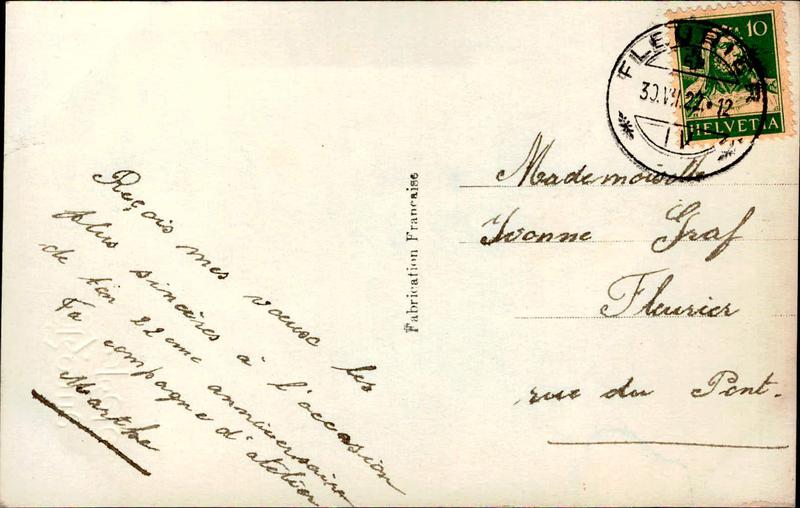 Reçois mes voeux les
plus sincères à l'occasion
de ton 22ème anniversaire
Ta compagne d'atelier
Marthe
Fabrication Française
10
HELVETIA
FLEURIER
30.VII.22.12
Mademoiselle
Yvonne Graf
Fleurier
rue du Pont.